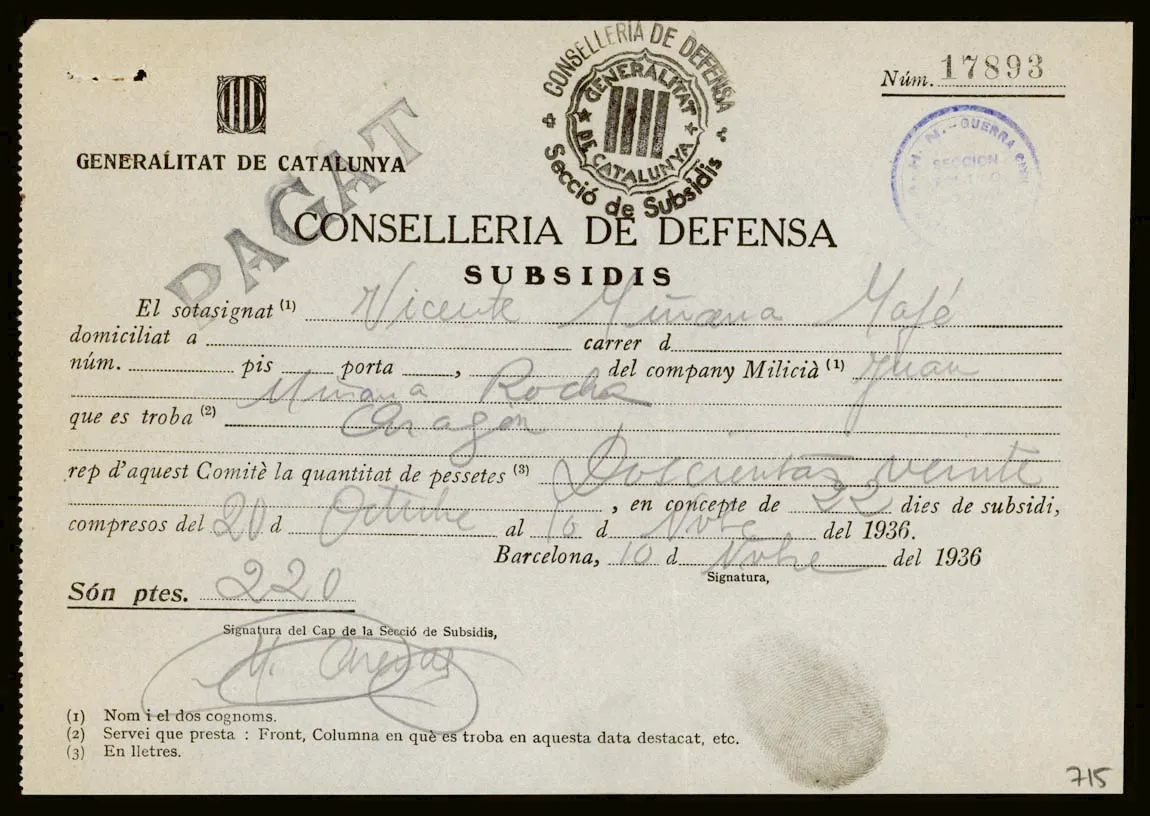 CONSELLERIA DE DEFENSA
GENERALITAT DE CATALUNYA
Secció de Subsidis
Núm. 17893
GUERRA CIVIL
SECCION
GENERALITAT DE CATALUNYA
PAGAT
CONSELLERIA DE DEFENSA
SUBSIDIS
El sotasignat (1) Vicente Miñana Mafé
domiciliat a carrer d
núm. pis porta , del company Milicià (1) Juan
Miñana Rocha
que es troba (2) Aragón
rep d'aquest Comitè la quantitat de pessetes (3) Doscientas veinte
, en concepte de 22 dies de subsidi,
compresos del 20 d Octubre al 10 d Nvbre del 1936.
Barcelona, 10 d Nvbre del 1936
Signatura,
Són ptes. 220
Signatura del Cap de la Secció de Subsidis,
(1) Nom i el dos cognoms.
(2) Servei que presta : Front, Columna en què es troba en aquesta data destacat, etc.
(3) En lletres.
715